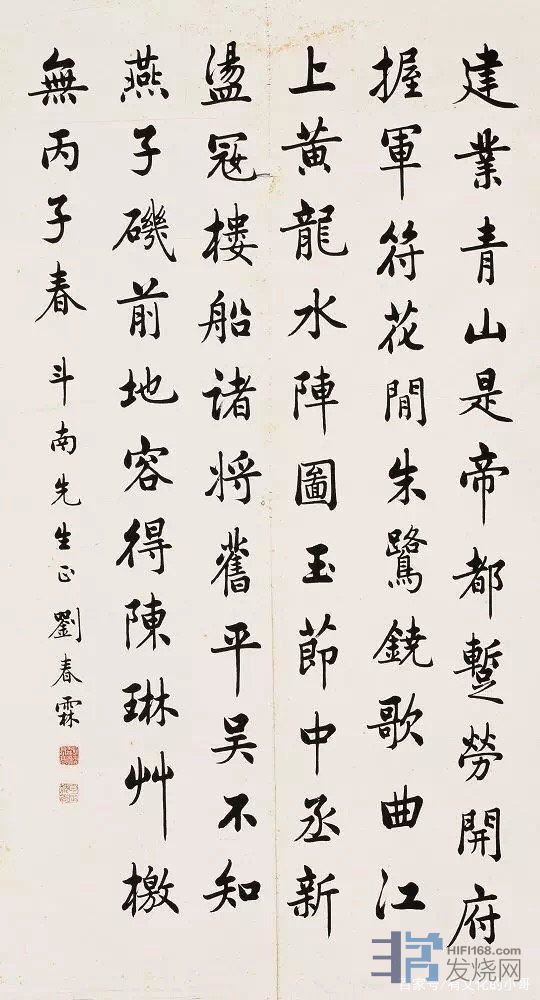 建業青山是帝都蹔勞開府
握軍符花閒朱鷺鐃歌曲江
上黃龍水陣圖玉節中丞新
盪寇樓船諸將舊平吳不知
燕子磯前地容得陳琳艸檄
無丙子春 斗南先生正 劉春霖
HIFI168.com
发烧网
百家号/有文化的小哥